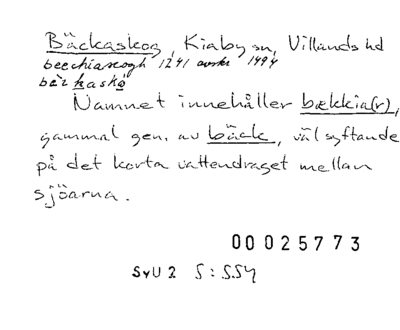 Bäckaskog, Kiaby sn, Villands hd
beechiascogh 1241 avskr 1494
bèʹkaskó
Namnet innehåller bækkia(r),
gammal gen. av bäck, väl syftande
på det korta vattendraget mellan
sjöarna.
00025773
SvU 2 S:554